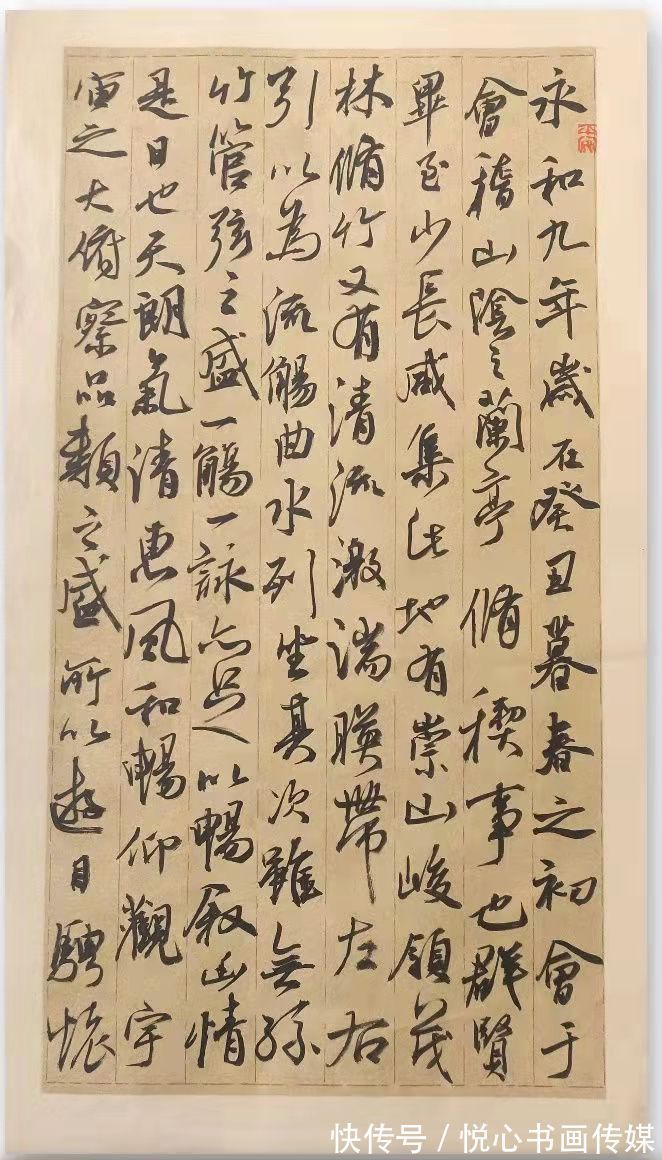 永和九年歲在癸丑暮春之初會于
會稽山陰之蘭亭脩稧事也群賢
畢至少長咸集此地有崇山峻領茂
林脩竹又有清流激湍暎帶左右
引以為流觴曲水列坐其次雖無絲
竹管弦之盛一觴一詠亦足以暢叙幽情
是日也天朗氣清惠風和暢仰觀宇
宙之大俯察品類之盛所以遊目騁懷
平安
快传号／悦心书画传媒